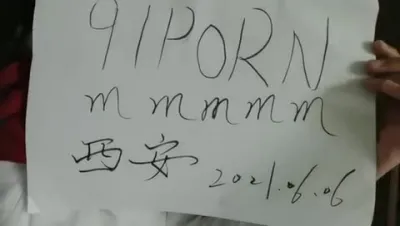 91PORN
mmmmm
西安 2021.06.06